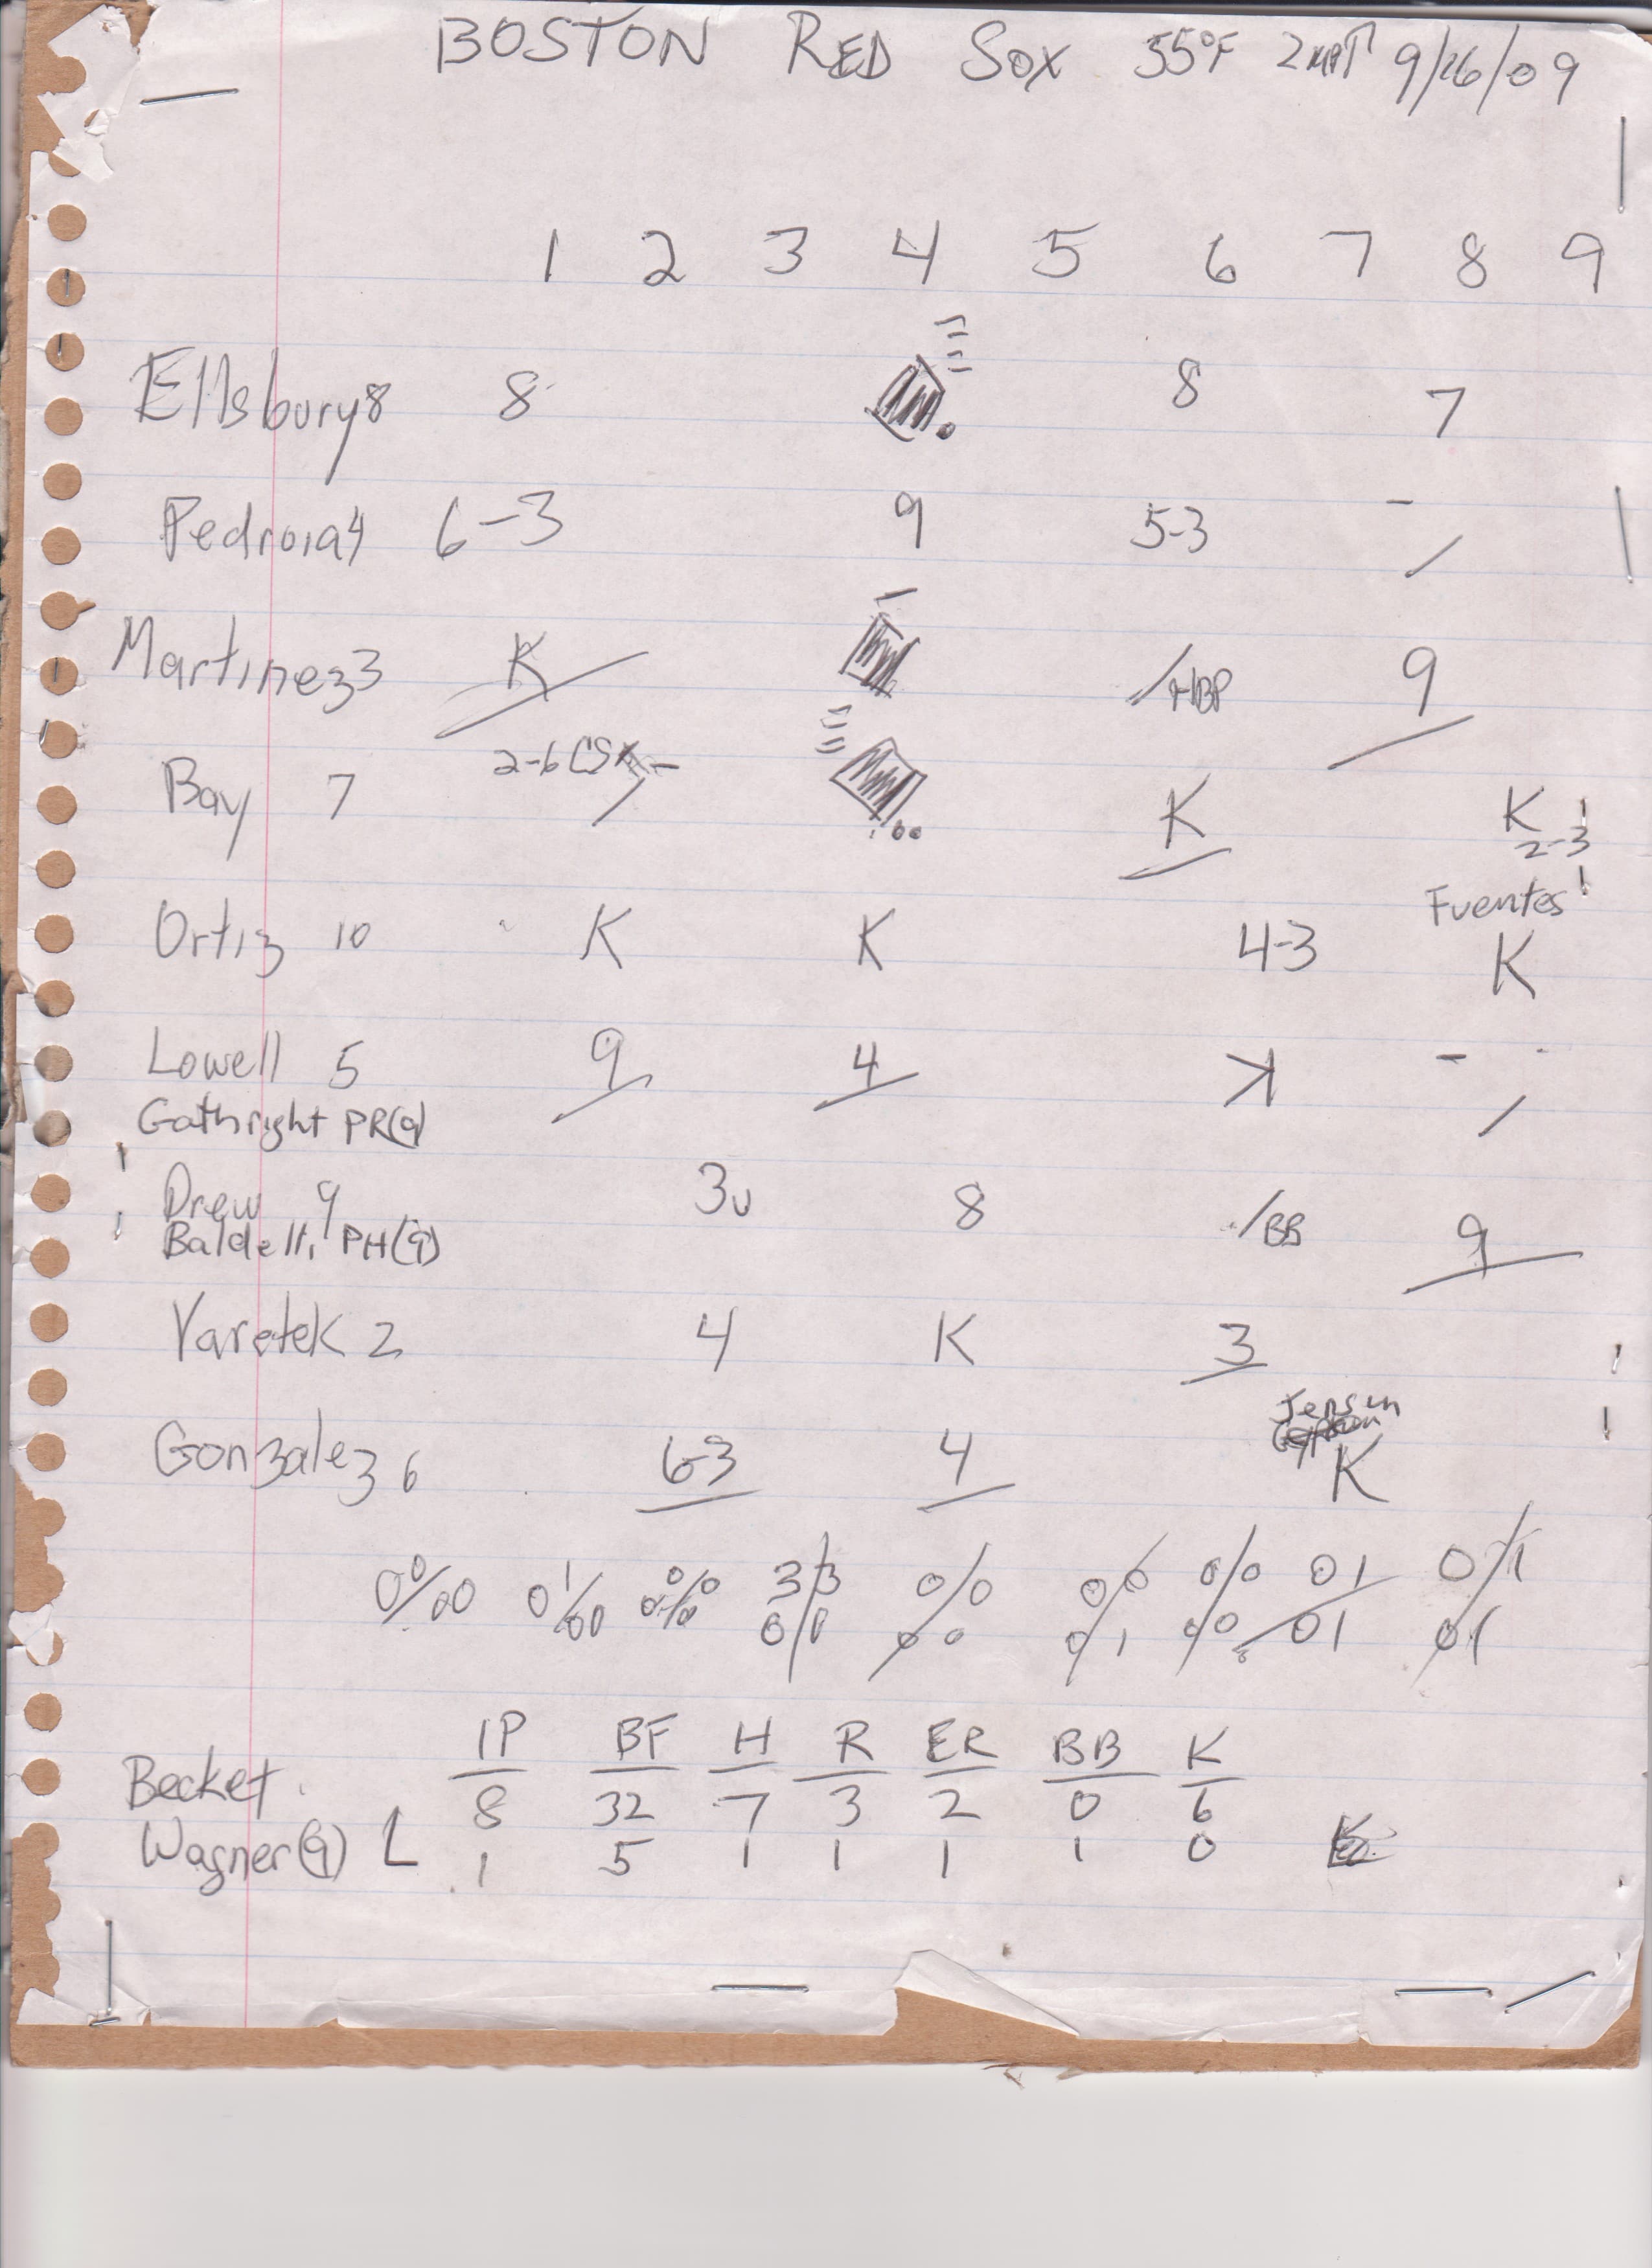 BOSTON RED SOX 55°F 9/26/09
1 2 3 4 5 6 7 8 9
Ellsbury 8 8 8 7
Pedroia 4 6-3 9 5-3 -
Martinez 3 K /HBP 9
2-6 CS
Bay 7 K K
2-3
Fuentes
Ortiz 10 K K 4-3 K
Lowell 5 9 4 K -
Gathright PR(9)
Drew 9 3u 8 /BB 9
Baldelli PH(9)
Varetek 2 4 K 3
Jepsen
Gonzalez 6 6-3 4 K
00/00 01/00 00/00 33/00 00/00 00/01 00/00 01/01 01/01
IP BF H R ER BB K
Becket 8 32 7 3 2 0 6
Wagner(9) L 1 5 1 1 1 1 0